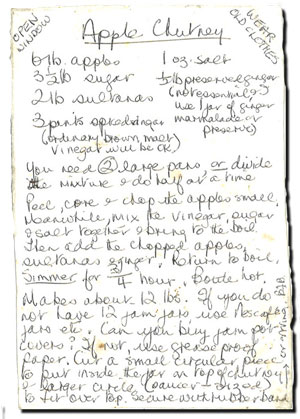 OPEN WINDOW
Apple Chutney
WEAR OLD CLOTHES
6 lb. apples
1 oz. salt
3½lb sugar
½lb preserved ginger
2lb sultanas
(not essential)
use 1 jar of ginger
marmalade or
preserve)
3 pints spiced vinegar
(ordinary brown malt
vinegar will be OK)
You need ② large pans, or divide
the mixture & do half at a time
Peel, core & chop the apples small.
Meanwhile, mix the vinegar, sugar
& salt together & bring to the boil.
Then add the chopped apples,
sultanas & ginger. Return to boil.
Simmer for ¾ hour. Bottle hot.
Makes about 12 lbs. If you do
not have 12 jam jars use Nescafe
jars etc. Can you buy jam pot
covers? If not, use grease proof
paper. Cut a small circular piece
to put inside the jar on top of chutney
& larger circle (saucer-sized)
to fit over top. Secure with rubber band
or string